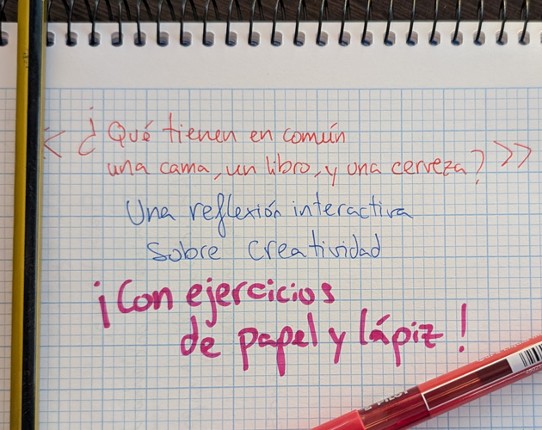 << ¿Qué tienen en común
una cama, un libro, y una cerveza? >>
Una reflexión interactiva
sobre creatividad
¡Con ejercicios
de papel y lápiz!
PILOT